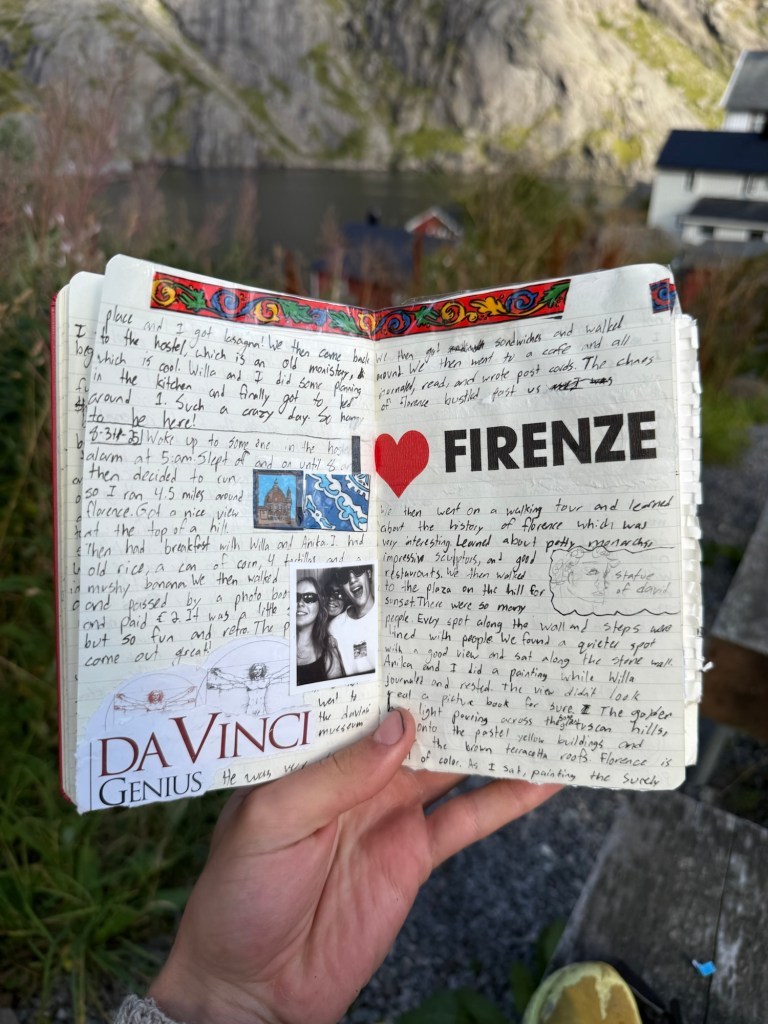 place and I got lasagna! We then came back
to the hostel, which is an old monistary,
which is cool. Willa and I did some planning
in the kitchen and finally got to bed
around 1. Such a crazy day. So happy
to be here!
8-31-25 Woke up to someone in the hostel
alarm at 5:am. Slept off and on until 8
then decided to run
so I ran 4.5 miles around
florence. Got a nice view
at the top of a hill.
Then had breakfast with Willa and Anika. I had
old rice, a can of corn, 4 tortillas and a
mushy banana. We then walked
and passed by a photo boo
and paid €2. It was a little
but so fun and retro. The p
come out great!
went to
the davinci
museum
DA VINCI
GENIUS
He was very
We then got sandwiches and walked
around. We then went to a cafe and all
journaled, read, and wrote post cards. The chaos
of florence bustled past us
I ♥ FIRENZE
We then went on a walking tour and learned
about the history of florence which was
very interesting. Learned about petty monarchs,
impressive sculptors, and good
restaurants. We then walked
to the plaza on the hill for
sunset. There were so many
statue
of david
people. Every spot along the wall and steps were
lined with people. We found a quieter spot
with a good view and sat along the stone wall.
Anika and I did a painting while Willa
journaled and rested. The view didn't look
real a picture book for sure. The golden
light pouring across the tuscan hills,
onto the pastel yellow buildings and
the brown terracotta roofs. Florence is
of color. As I sat, painting the surely